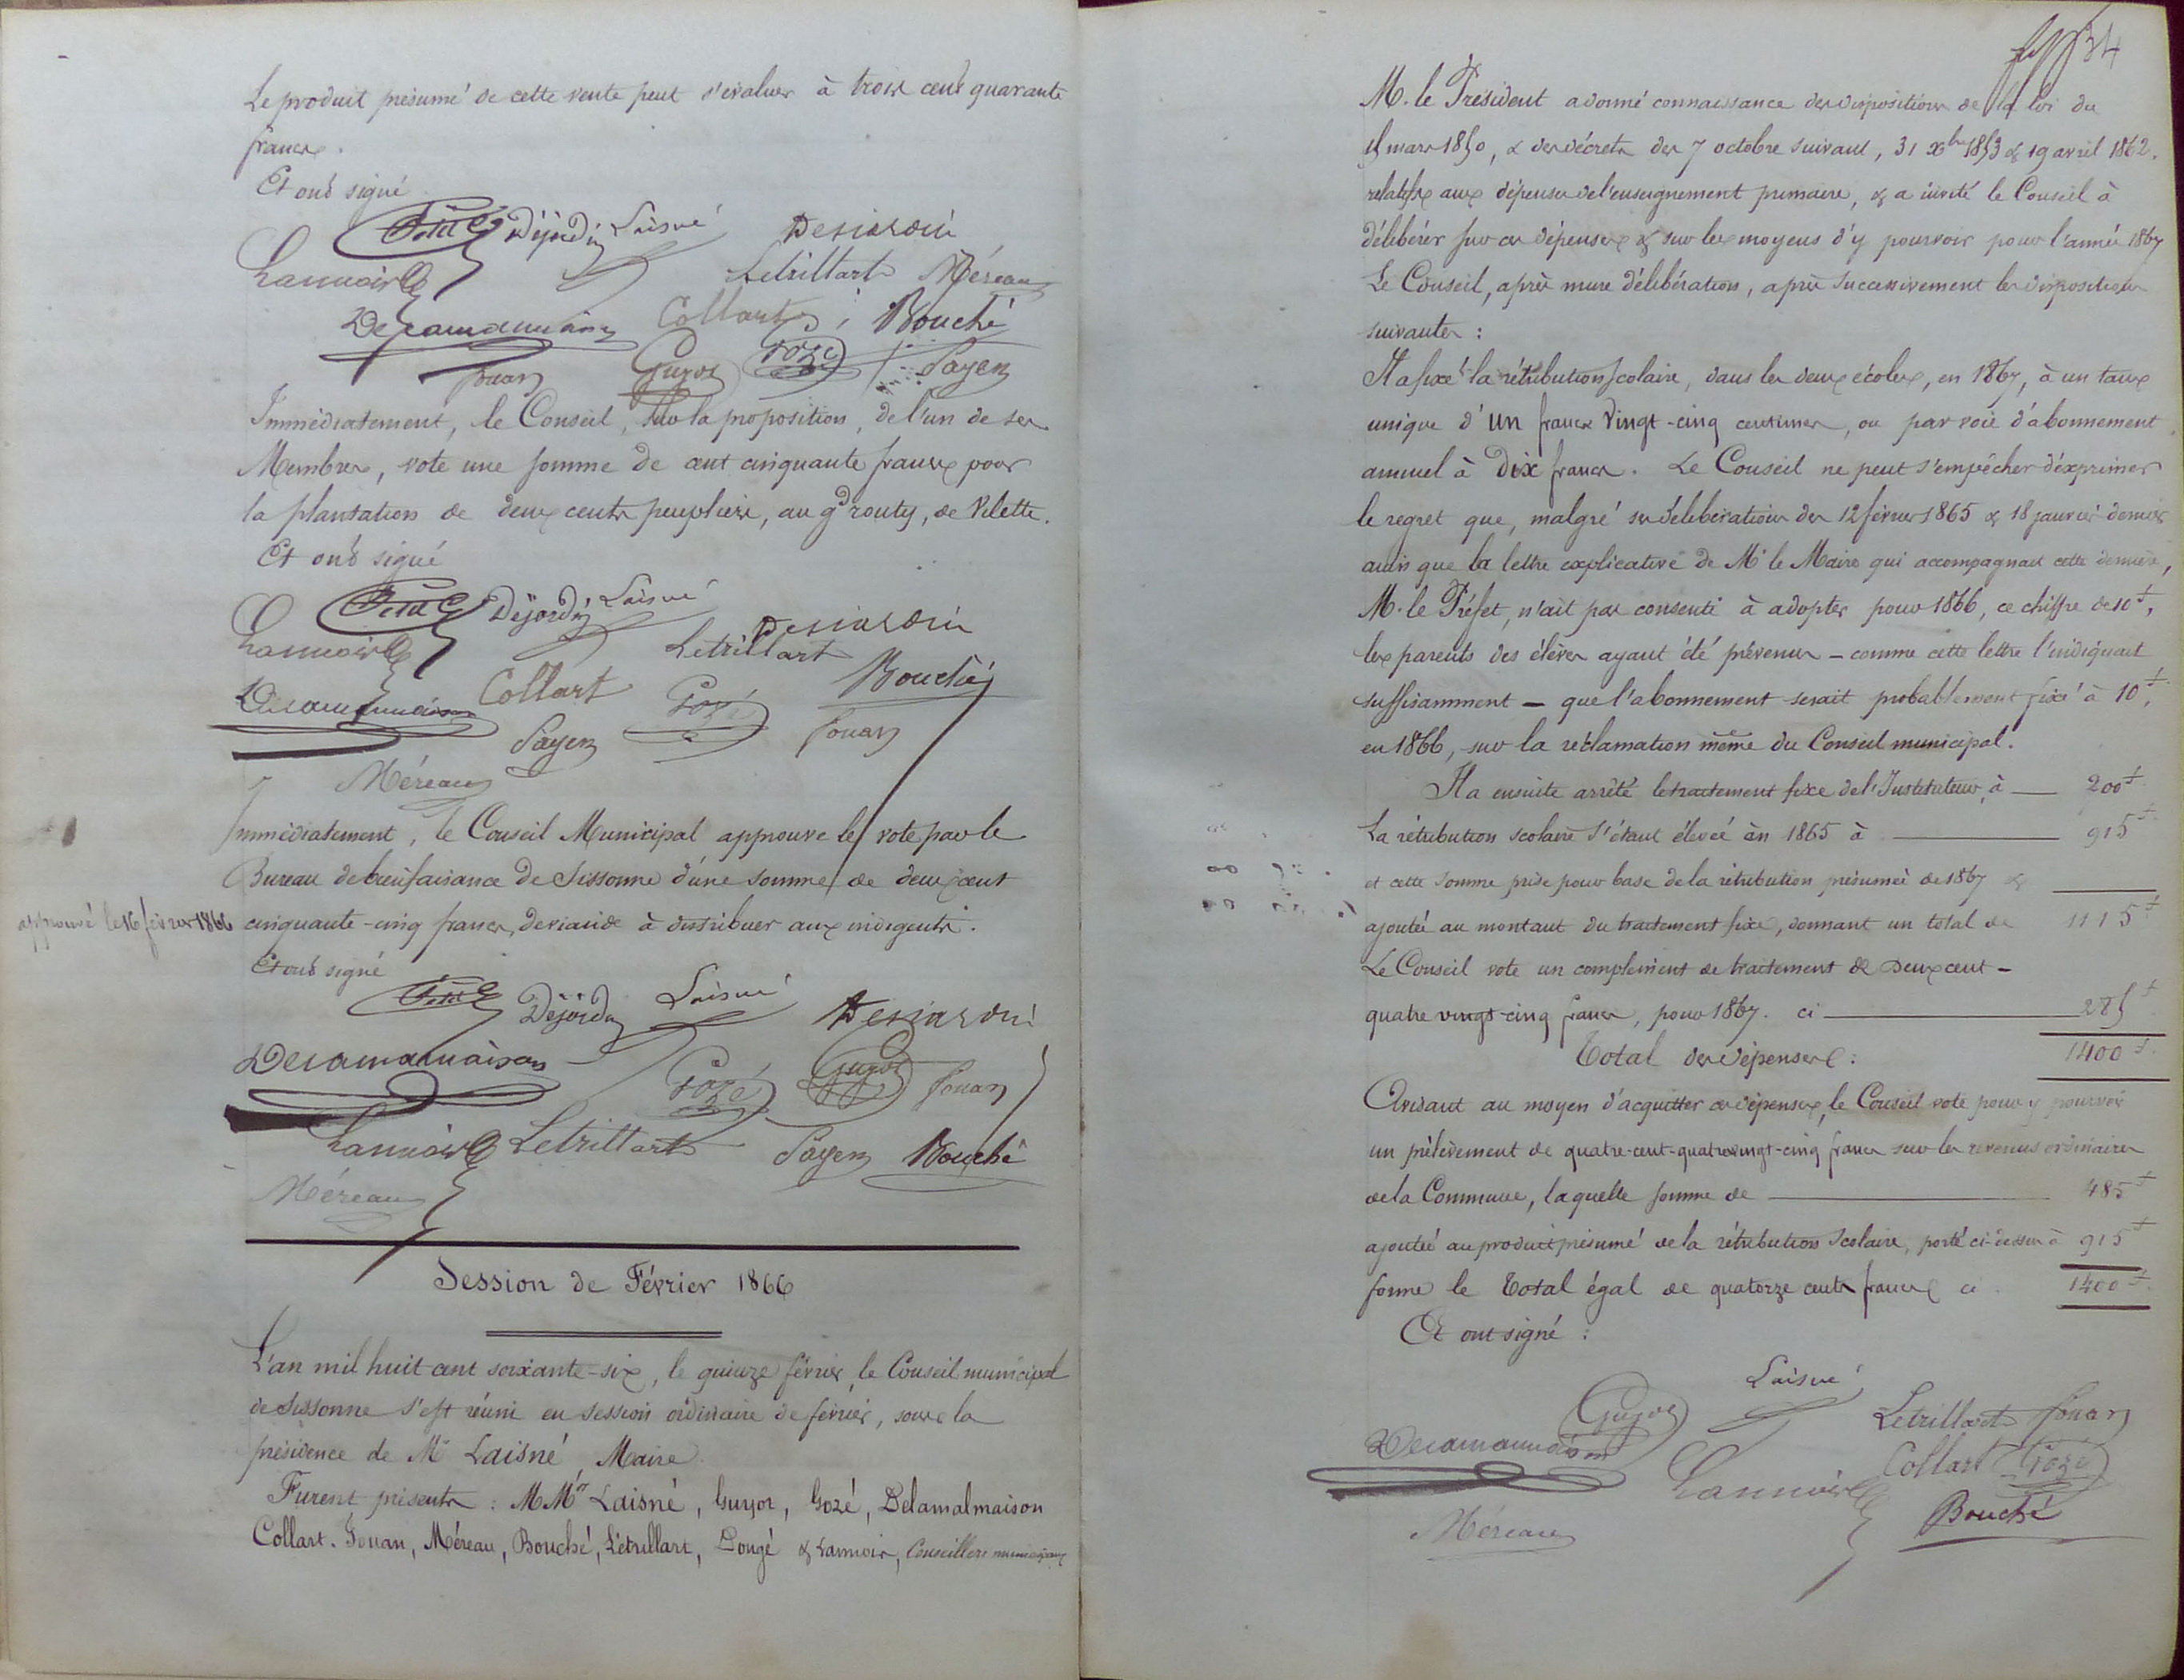 Le produit présumé de cette vente peut s'évaluer à trois cent quarante
francs.
Et ont signé
Petit Déjardin Laisné Desjardin
Lannoir Letrillart Méreau
Delamalmaison Collart Bouché
Fouan Guyot Gozé Payen
Immédiatement, le Conseil, sur la proposition, de l'un de ses
Membres, vote une somme de cent cinquante francs pour
la plantation de deux cents peupliers, au gd routy, de Vilette.
Et ont signé
Petit Déjardin Laisné Desjardin
Lannoir Letrillart
Delamalmaison Collart Gozé Bouché
Payen Fouan
Méreau
Immédiatement, le Conseil Municipal approuve le vote par le
Bureau de bienfaisance de Sissonne d'une somme de deux cent
approuvé le 16 février 1866
cinquante-cinq francs, de viande à distribuer aux indigents.
Et ont signé
Petit Déjardin Laisné Desjardin
Delamalmaison Gozé Guyot Fouan
Lannoir Letrillart Payen Bouché
Méreau
Session de Février 1866
L'an mil huit cent soixante-six, le quinze février, le Conseil municipal
de Sissonne s'est réuni en session ordinaire de février, sous la
présidence de Mr Laisné, Maire.
Furent présents : M.Mrs Laisné, Guyot, Gozé, Delamalmaison
Collart, Fouan, Méreau, Bouché, Létrillart, Longé & Lannoir, Conseillers municipaux
34
M. le Président a donné connaissance des dispositions de la loi du
15 mars 1850, & des décrets des 7 octobre suivant, 31 Xbre 1853 & 19 avril 1862,
relatifs aux dépenses de l'enseignement primaire, & a invité le Conseil à
délibérer sur ces dépenses & sur les moyens d'y pourvoir pour l'année 1867
Le Conseil, après mure délibération, a pris successivement les dispositions
suivantes :
Il a fixé la rétribution scolaire, dans les deux écoles, en 1867, à un taux
unique d'un franc vingt-cinq centimes, ou par voie d'abonnement
annuel à Dix francs. Le Conseil ne peut s'empêcher d'exprimer
le regret que, malgré ses délibérations des 12 février 1865 & 18 janvier dernier
ainsi que la lettre explicative de Mr le Maire qui accompagnait cette dernière,
M. le Préfet, n'ait pas consenti à adopter pour 1866, ce chiffre de 10f,
les parents des élèves ayant été prévenus - comme cette lettre l'indiquait
suffisamment - que l'abonnement serait probablement fixé à 10f,
en 1866, sur la réclamation même du Conseil municipal.
Il a ensuite arrêté le traitement fixe de l'Instituteur, à 200f
La rétribution scolaire s'étant élevée en 1865 à 915f
et cette somme prise pour base de la rétribution présumée de 1867 &
ajoutée au montant du traitement fixe, donnant un total de 1115f
Le Conseil vote un complément de traitement de Deux cent-
quatre vingt-cinq francs, pour 1867. ci 285f
Total des dépenses : 1400f
Avisant au moyen d'acquitter ces dépenses, le Conseil vote pour y pourvoir
un prélèvement de quatre-cent-quatrevingt-cinq francs sur les revenus ordinaires
de la Commune, laquelle somme de 485f
ajoutée au produit présumé de la rétribution scolaire, porté ci-dessus à 915f
forme le Total égal de quatorze cents francs ci 1400f
Et ont signé :
Laisné
Guyot Letrillart Fouan
Delamalmaison Collart Gozé
Lannoir Bouché
Méreau